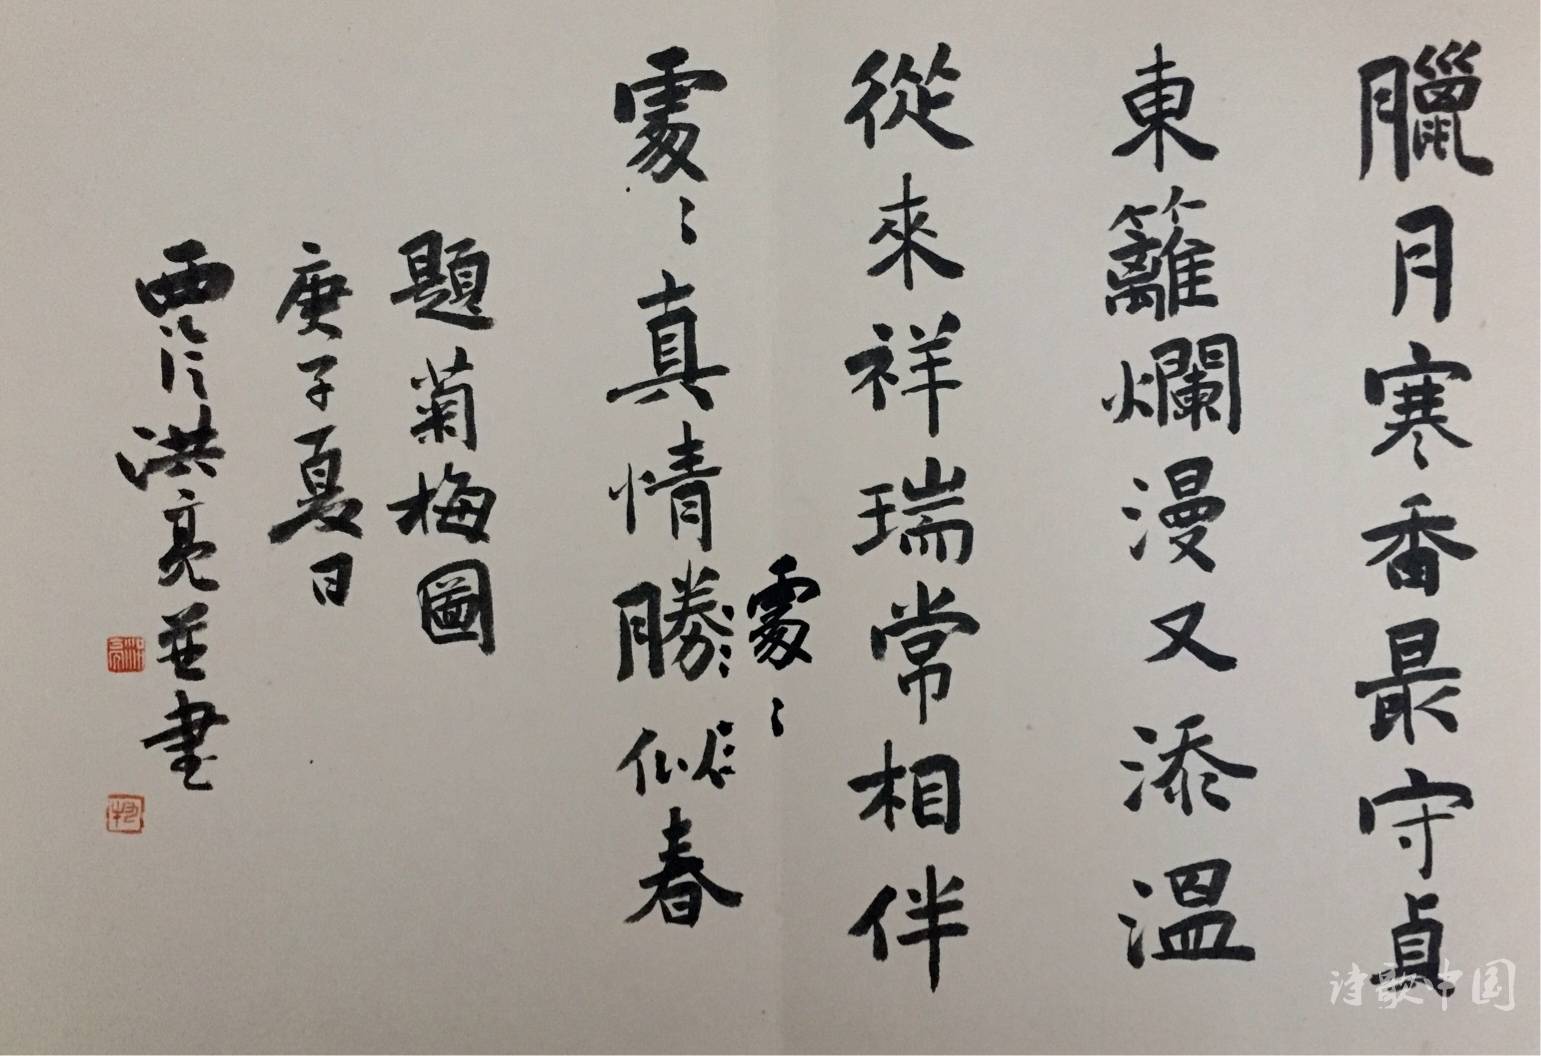 臘月寒香最守貞
東籬爛漫又添溫
從來祥瑞常相伴
處〻真情勝似春
處〻
題菊梅圖
庚子夏日
西泠洪亮並書
洪亮
诗歌中国